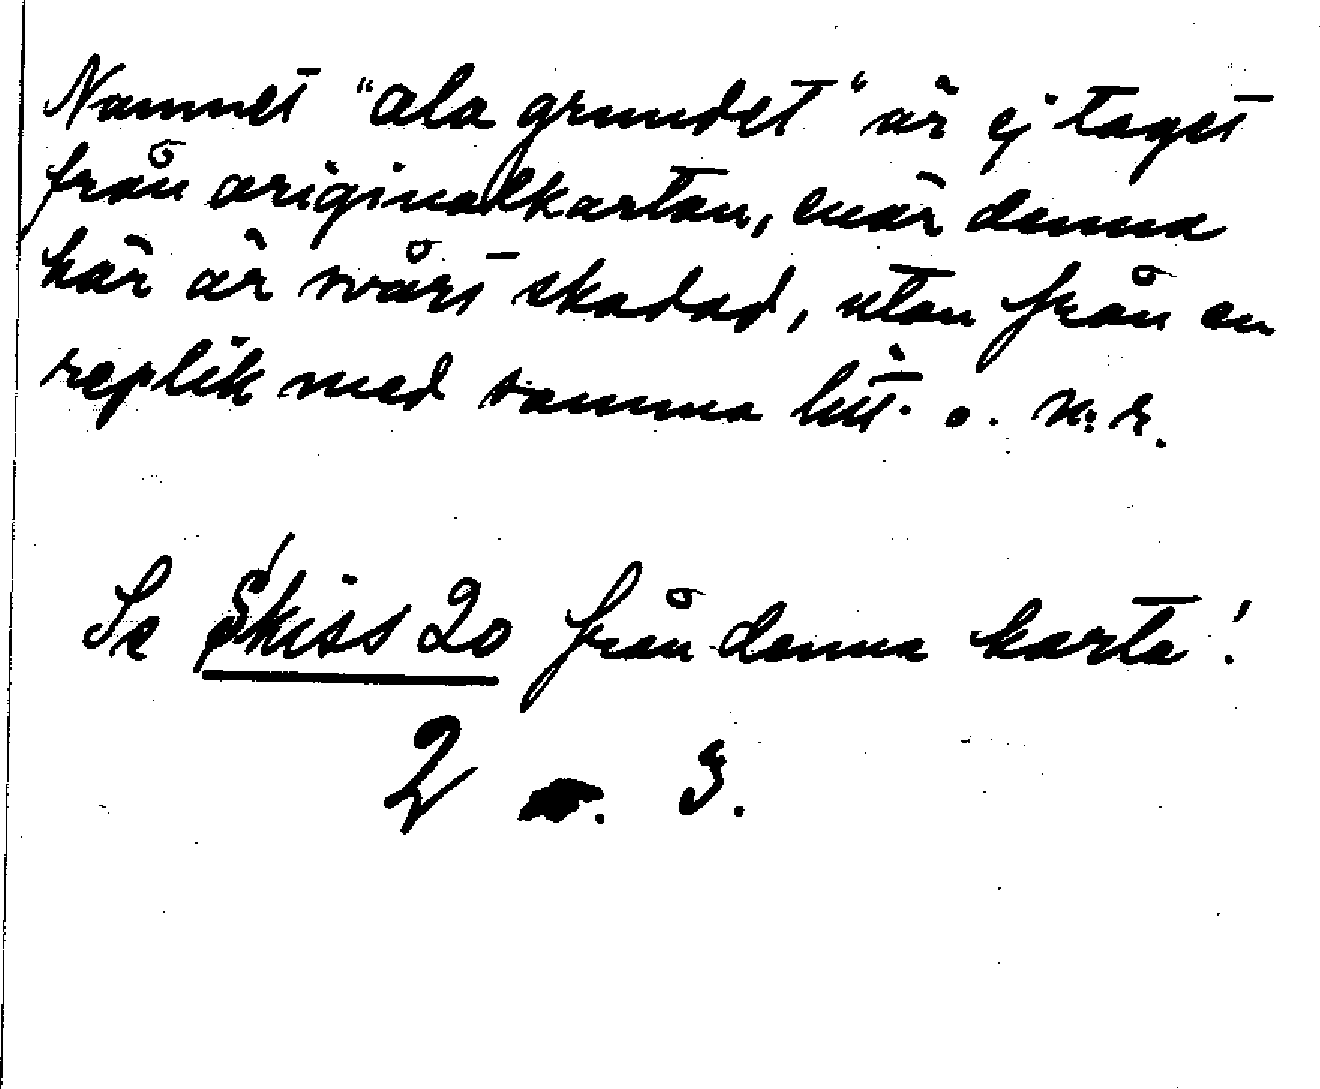 Namnet "ala grundet" är ej taget
från originalkartan, enär denna
här är svårt skadad, utan från en
replik med samma litt. o. n:r.
Se Skiss 20 från denna karta!
2 3.